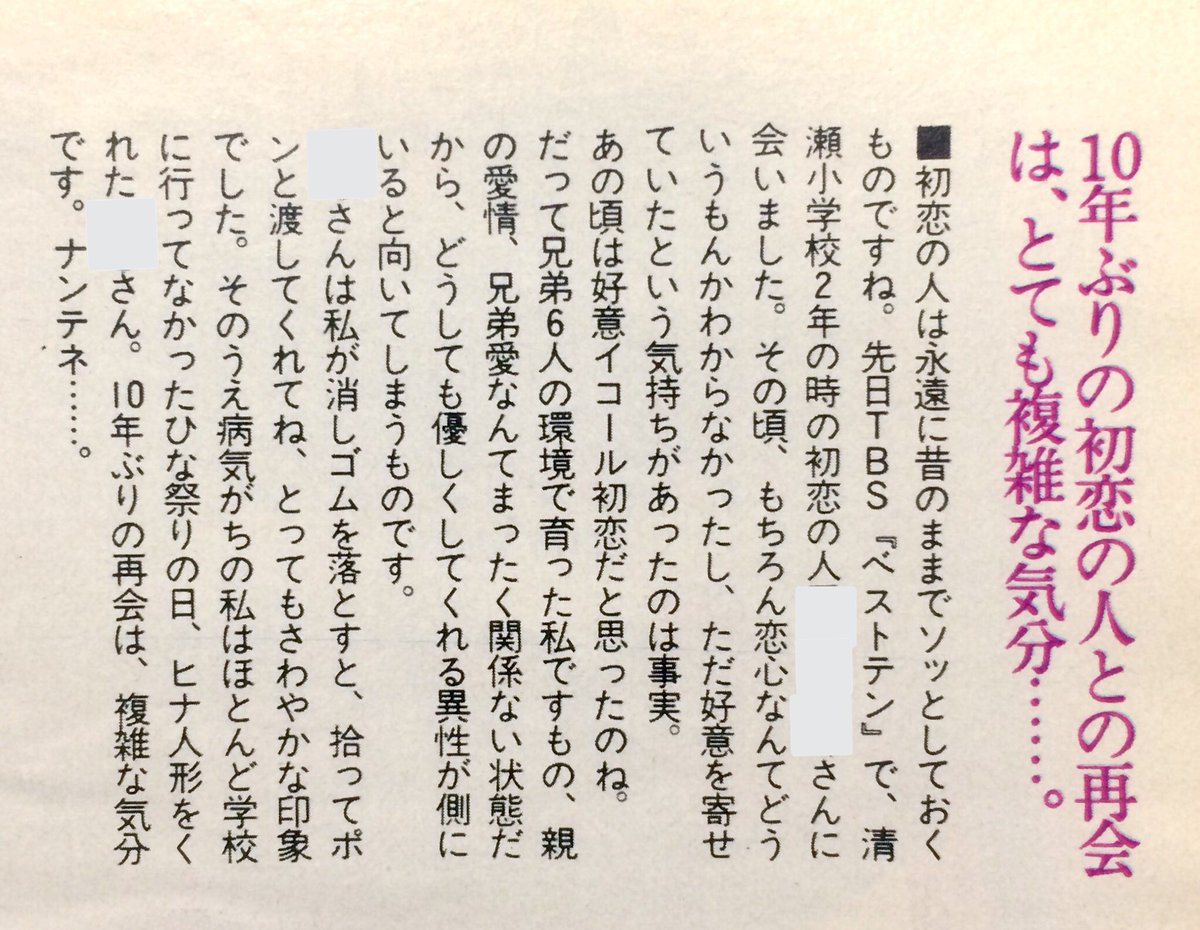 10年ぶりの初恋の人との再会
は、とても複雑な気分……。
■初恋の人は永遠に昔のままでソッとしておく
ものですね。先日TBS『ベストテン』で、清
瀬小学校2年の時の初恋の人さんに
会いました。その頃、もちろん恋心なんてどう
いうもんかわからなかったし、ただ好意を寄せ
ていたという気持ちがあったのは事実。
あの頃は好意イコール初恋だと思ったのね。
だって兄弟6人の環境で育った私ですもの、親
の愛情、兄弟愛なんてまったく関係ない状態だ
から、どうしても優しくしてくれる異性が側に
いると向いてしまうものです。
さんは私が消しゴムを落とすと、拾ってポ
ンと渡してくれてね、とってもさわやかな印象
でした。そのうえ病気がちの私はほとんど学校
に行ってなかったひな祭りの日、ヒナ人形をく
れたさん。10年ぶりの再会は、複雑な気分
です。ナンテネ……。